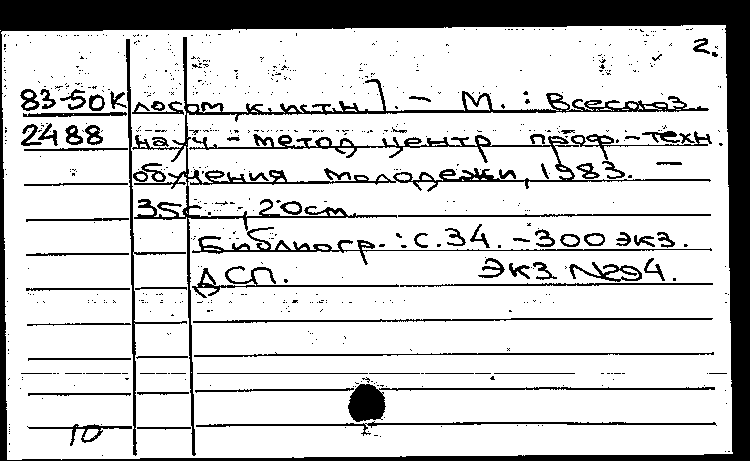 2.
83-50К лосом, к.ист.н.]. - М. : Всесоюз.
2488 науч. - метод центр проф.-техн.
обучения молодежи, 1983. -
35с. -, 20см.
Библиогр.: с.34. -300 экз.
ДСП. Экз. №294.
10